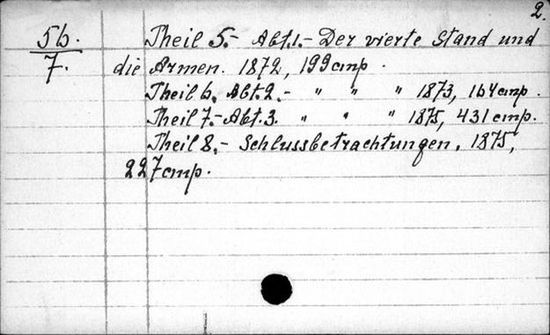 2.
56.
7.
Theil 5.- Abt.1.- Der vierte Stand und
die Armen. 1872, 199 стр.
Theil 6. Abt.2.- " " " 1873, 164 стр.
Theil 7.- Abt.3. " " " 1875, 431 стр.
Theil 8.- Schlussbetrachtungen. 1875,
227 стр.